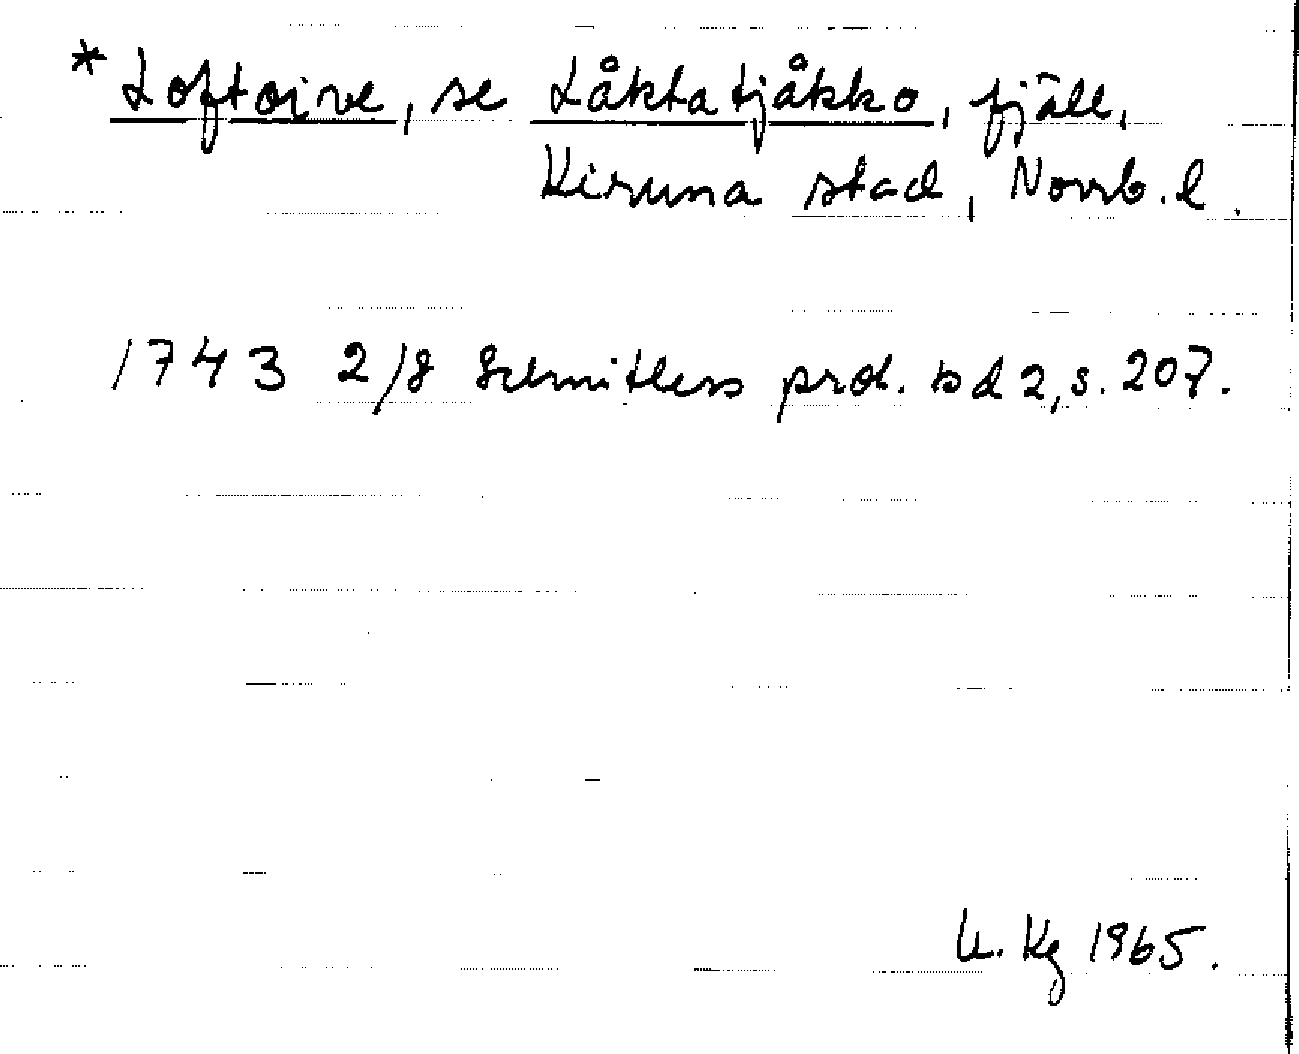 * Loftoive, se Låktatjåkko, fjäll,
Kiruna stad, Norrb. l.
1743 2/8 Schnitlers prot. bd 2, s. 207.
U. Kg 1965.